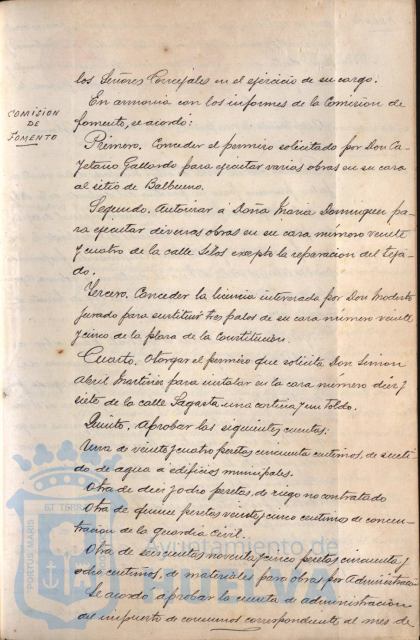 los Señores Concejales en el ejercicio de su cargo.
COMISION
DE
FOMENTO
En armonia con los informes de la Comision de
fomento, se acordó:
Primero. Conceder el permiso solicitado por Don Ca-
yetano Gallardo para ejecutar varias obras en su casa
al sitio de Balbueno.
Segundo. Autorizar á Doña Maria Dominguez pa-
ra ejecutar diversas obras en su casa número veinte
y cuatro de la calle excepto la reparacion del teja-
do.
Tercero. Conceder la licencia interesada por Don Modesto
Jurado para sustituir tres palos de su casa número veinte
y cinco de la plaza de la Constitucion.
Cuarto. Otorgar el permiso que solicita Don Simon
Abril Martinez para instalar en la casa número diez y
siete de la calle Sagasta una cortina y un toldo.
Quinto. Aprobar las siguientes cuentas:
Una de veinte y cuatro pesetas cincuenta centimos, de
do de agua a edificios municipales.
Otra de diez y ocho pesetas, de riego no contratado
Otra de quince pesetas veinte y cinco centimos de concen-
tracion de la guardia civil.
Otra de seiscientas noventa y cinco pesetas cincuenta y
ocho centimos, de materiales para obras por administracion
Se acordó aprobar la cuenta de administracion
del impuesto de consumos correspondiente al mes de
PORTUS MARIS
ET TERRA
Ayuntamiento de